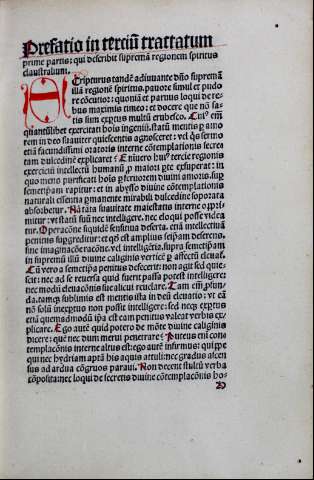 Prefatio in terciũ tractatum
prime partis: qui describit supremã regionem spiritus
claustralium.
EScripturus tandẽ adiuuante dño supremã
illã regionẽ spiritus, pauore simul et pudo
re cõcutior: quoniã et paruus loqui de re-
bus maximis timeo: et docere que nõ sa-
tis sum exptus multũ erubesco. Cuiꝰ em̃
quantũlibet exercitati hois ingeniũ, statũ mentis p amo
rem in deo suauiter quiescentis agnosceret: vel qͥs sermo
etiã facundissimi oratoris interne cõtemplationis secreta
tam dulcedinẽ explicaret? Eniuero huiꝰ tercie regionis
exerciciũ intellectũ humanũ p maiori pte exsuperat: in
quo mens purificati hois p feruorem diuini amoris, sup
semetipam rapitur: et in abysso diuine cõtemplationis
naturali essentia pmanente mirabili dulcedine soporata
absorbetur. Nã tãta suauitate maiestatis interne opprí-
mitur: vt statũ suũ nec intelligere, nec eloqui posse videa
tur. Operacõne siquidẽ sensitiua deserta, entia intellectiua
penitus supgreditur: et qͦd est amplius seipam deserens,
sine imaginacõne racõne. vel intelligẽtia, supra semetipam
in supremũ illũ diuine caliginis verticẽ p affectũ eleuat.
Cũ vero a semetipsa penitus defecerit: non agit sed quie-
scit: nec ad se reuersa quid fuerit passa potest intelligere:
nec modũ eleuacõnis sue alicui reuelare. Tam em̃ pfun-
da, tamqꝫ sublimis est mentis ista in deũ eleuatio: vt eã
non solũ inexptus non possit intelligere: sed neqꝫ exptus
eam quemadmodũ ipa est eam penitus valeat verbis ex-
plicare. Ego autẽ quid potero de mõte diuine caliginis
dicere: quẽ nec dum merui penetrare? Puteus em̃ con-
templacõnis interne altus est: ego autẽ infirmus: quippe
qui nec hydriam aptã his aquis attuli: nec gradus ascen
sus ad ardua cõgruos paraui. Non decent stultũ verba
cõposita: nec loqui de secretis diuine cõtemplacõnis ho-